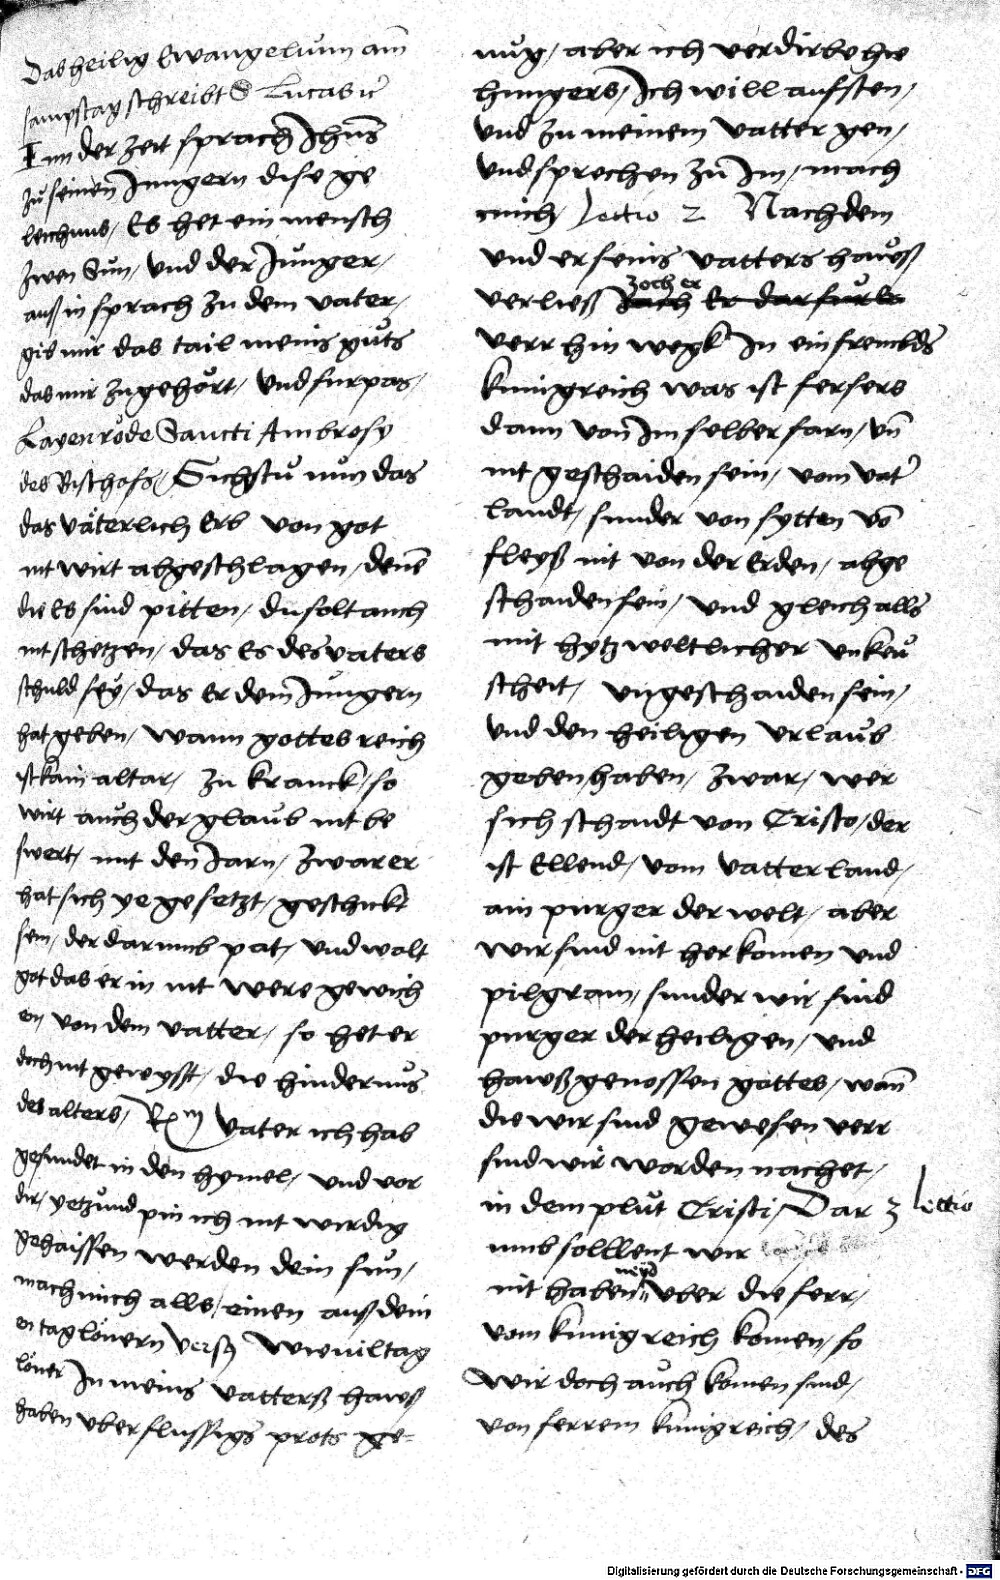 Das heilig Ewangelium am̄
sampstag schreibt S Lucas ꝛc
Inn der zeit sprach Jhūs
zů seinen Jungern dise ge
leichnus, Es het ein mensch
zwen Sun, vnd der Junger,
auß in sprach zu dem vater,
gib mir das tail meins gůts
das mir zugehőrt, Vnd furpas,
Layenrőde Sancti Ambrosy
des Bischofs, Sichstu nun das
das vȧterlich Erb von got
nit wirt abgeschlagen, denē
die Es sind pitten, du solt auch
nit schetzen, das Es des vaters
schuld sey, das Er dem Jungern
hat geben, wann gottes reich
ist kain altar, zu kranck, so
wirt auch der glaůb nit be
swert, mit den Jarn, zwar er
hat sich ye gesetzt, geschickt
sein, der darumb pat, vnd wolt
got das er in nit were gewich
en von dem vatter, so het er
doch nit gewyst, die hindernůs
des alters, Rm Vater ich hab
gesundet in den hymel, vnd vor
dir, yetzund pin ich nit wirdig
gehaissen werden dein sun,
mach mich alls, einen auß dein
en taglőnern Verß Wieuil tag
lőner In meins vatterß hawß
haben vberflussigs prots ge-
nůg, aber ich verdirbe hie
hungers, Ich will aufsten,
vnd zu meinem vatter gen,
vnd sprechen zu Im, mach
mich, lectio 2 Nachdem
vnd er seins vatters haůß
zoch er
verließ Er darfur
verr hin wegk In ein frembds
kunigreich was ist fersers
dann von Im selber farn, vn̄
nit geschaiden sein, vom vat'
landt, sunder von sytten vō
fleyß nit von der Erden, abge
schaiden sein, vnd gleich alls
mit hytz weltlicher vnkeů
scheit, vngeschaiden sein,
vnd den heiligen vrlaůb
geben haben, zwar, wer
sich schaidt von Cristo, der
ist Ellend, vom vatterland,
ain purger der welt, aber
wir sind nit herkomen vnd
pilgram, sunder wir sind
purger der heiligen, vnd
hawßgenossen gottes, wan̄
die wir sind gewesen verr
sind wir worden nachet,
in dem plůt Cristi, Dar 3 lectio
umb solllent wir
neyd
nit haben vber die ferr,
vom kunigreich komen, so
wir doch aůch komen sind,
von ferrem kunigreich, des
Digitalisierung gefördert durch die Deutsche Forschungsgemeinschaft - DFG